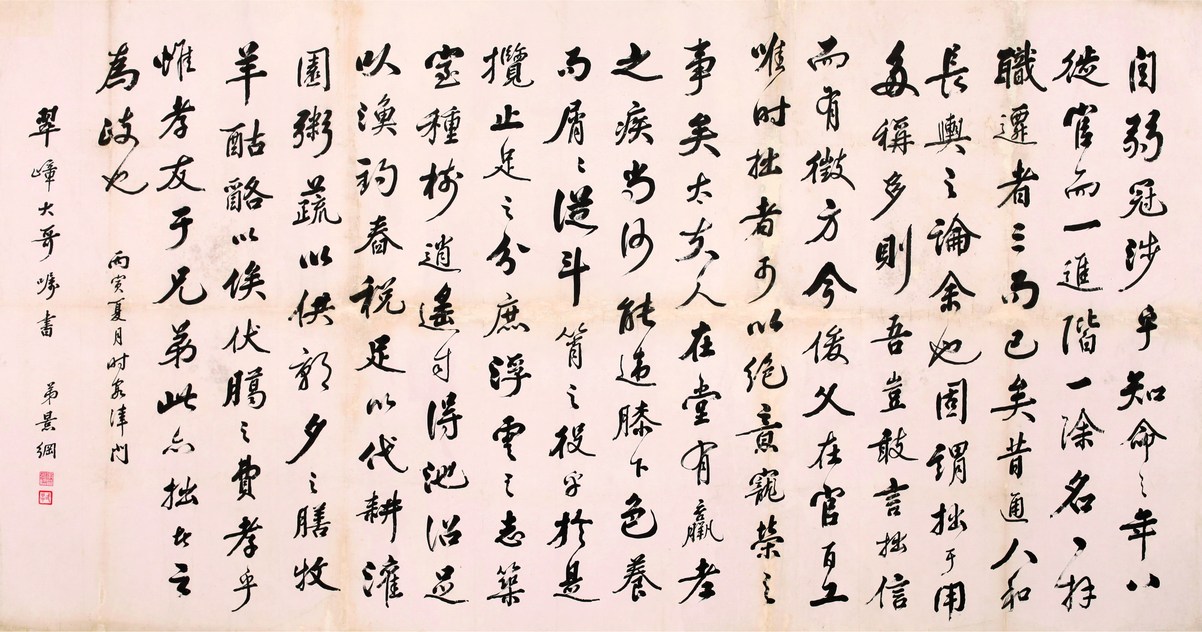 自弱冠涉乎知命之年八
徙官而一進階一除名一拜
職遷者三而已矣昔通人和
長輿之論余也固謂拙于用
多稱多則吾豈敢言拙信
而有徵方今俊乂在官百工
唯时拙者可以絕意寵榮之
事矣太夫人在堂有羸老
之疾尚何能違膝下色養
而屑々從斗筲之役乎於是
攬止足之分庶浮雲之志築
室種樹逍遙自得池沼足
以漁釣舂稅足以代耕灌
園粥蔬以供朝夕之膳牧
羊酤酪以俟伏臘之費孝乎
惟孝友于兄弟此亦拙者之
為政也
丙寅夏月时客津門
翠嶂大哥囑書 弟景綱